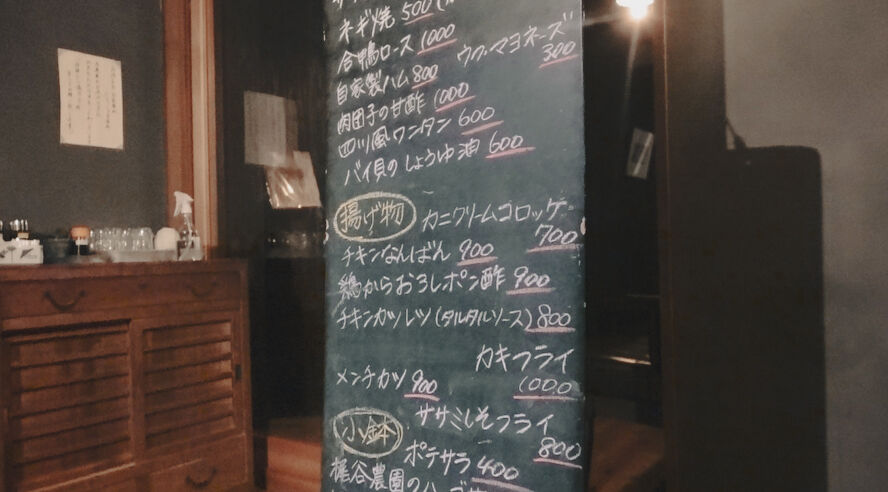 ネギ焼 500
合鴨ロース 1000
ウフ・マヨネーズ
300
自家製ハム 800
肉団子の甘酢 1000
四川風ワンタン 600
バイ貝のしょうゆ油 600
揚げ物
カニクリームコロッケ
700
チキンなんばん 900
鶏からおろしポン酢 900
チキンカツレツ(タルタルソース) 800
カキフライ
1000
メンチカツ 900
ササミしそフライ
800
小鉢
ポテサラ 400
梶谷農園の